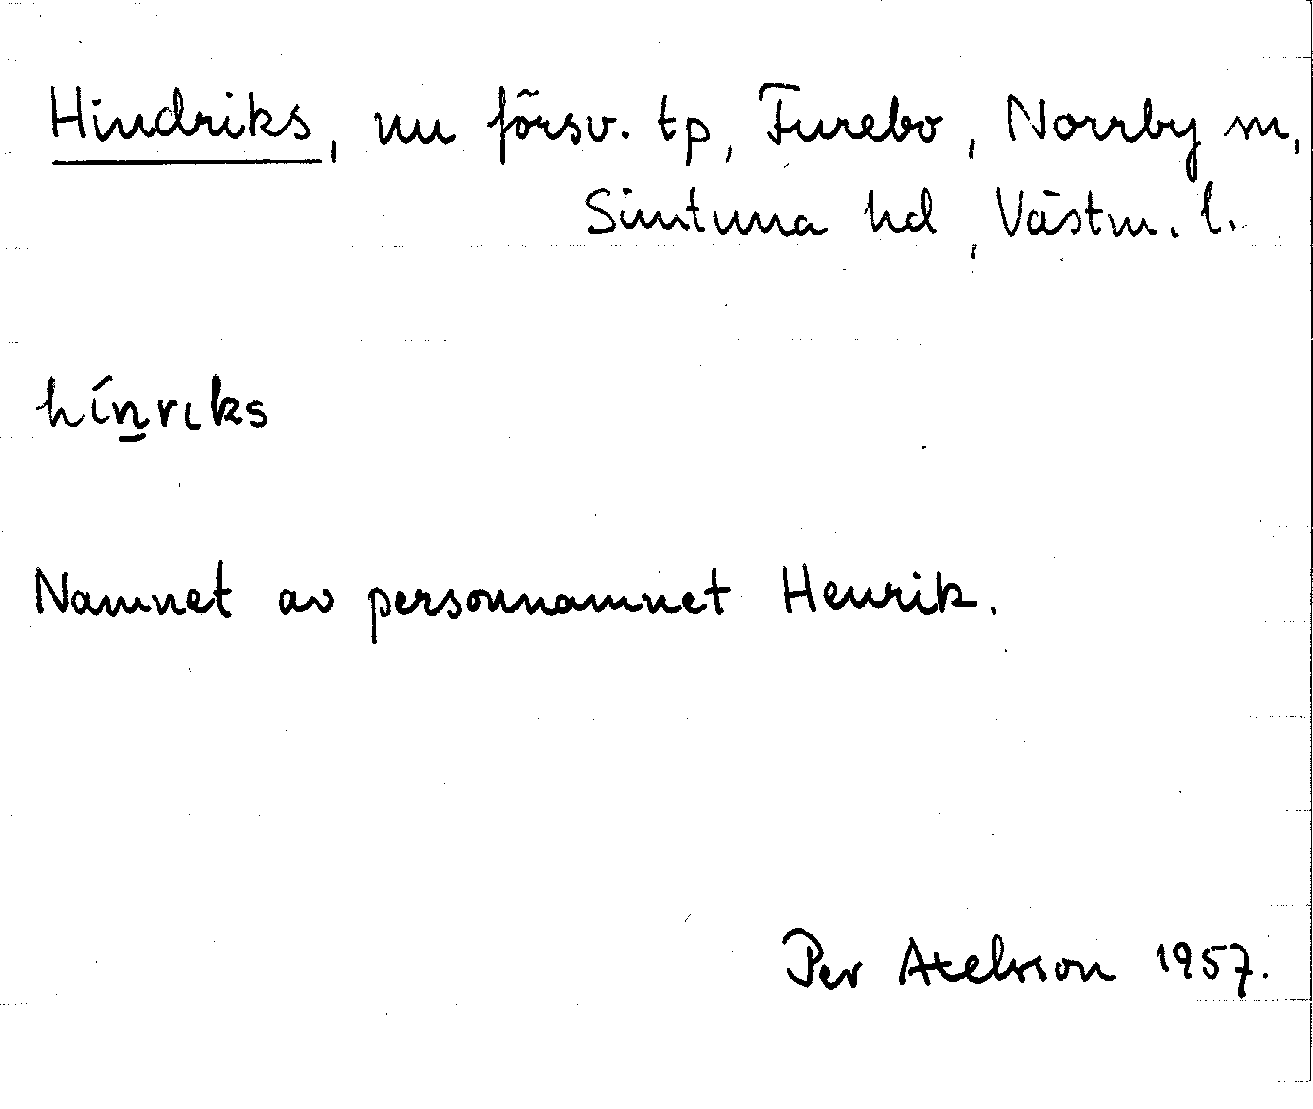 Hindriks, nu försv. tp, Furebo, Norrby sn,
Simtuna hd, Västm. l.
hínrɩks
Namnet av personnamnet Henrik.
Per Axelsson 1957.